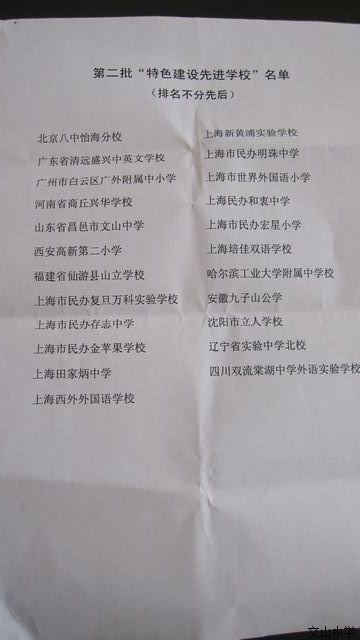 第二批“特色建设先进学校”名单
（排名不分先后）
北京八中怡海分校
广东省清远盛兴中英文学校
广州市白云区广外附属中小学
河南省商丘兴华学校
山东省昌邑市文山中学
西安高新第二小学
福建省仙游县山立学校
上海市民办复旦万科实验学校
上海市民办存志中学
上海市民办金苹果学校
上海田家炳中学
上海西外外国语学校
上海新黄浦实验学校
上海市民办明珠中学
上海市世界外国语小学
上海民办和衷中学
上海市民办宏星小学
上海培佳双语学校
哈尔滨工业大学附属中学校
安徽九子山公学
沈阳市立人学校
辽宁省实验中学北校
四川双流棠湖中学外语实验学校
文山中学